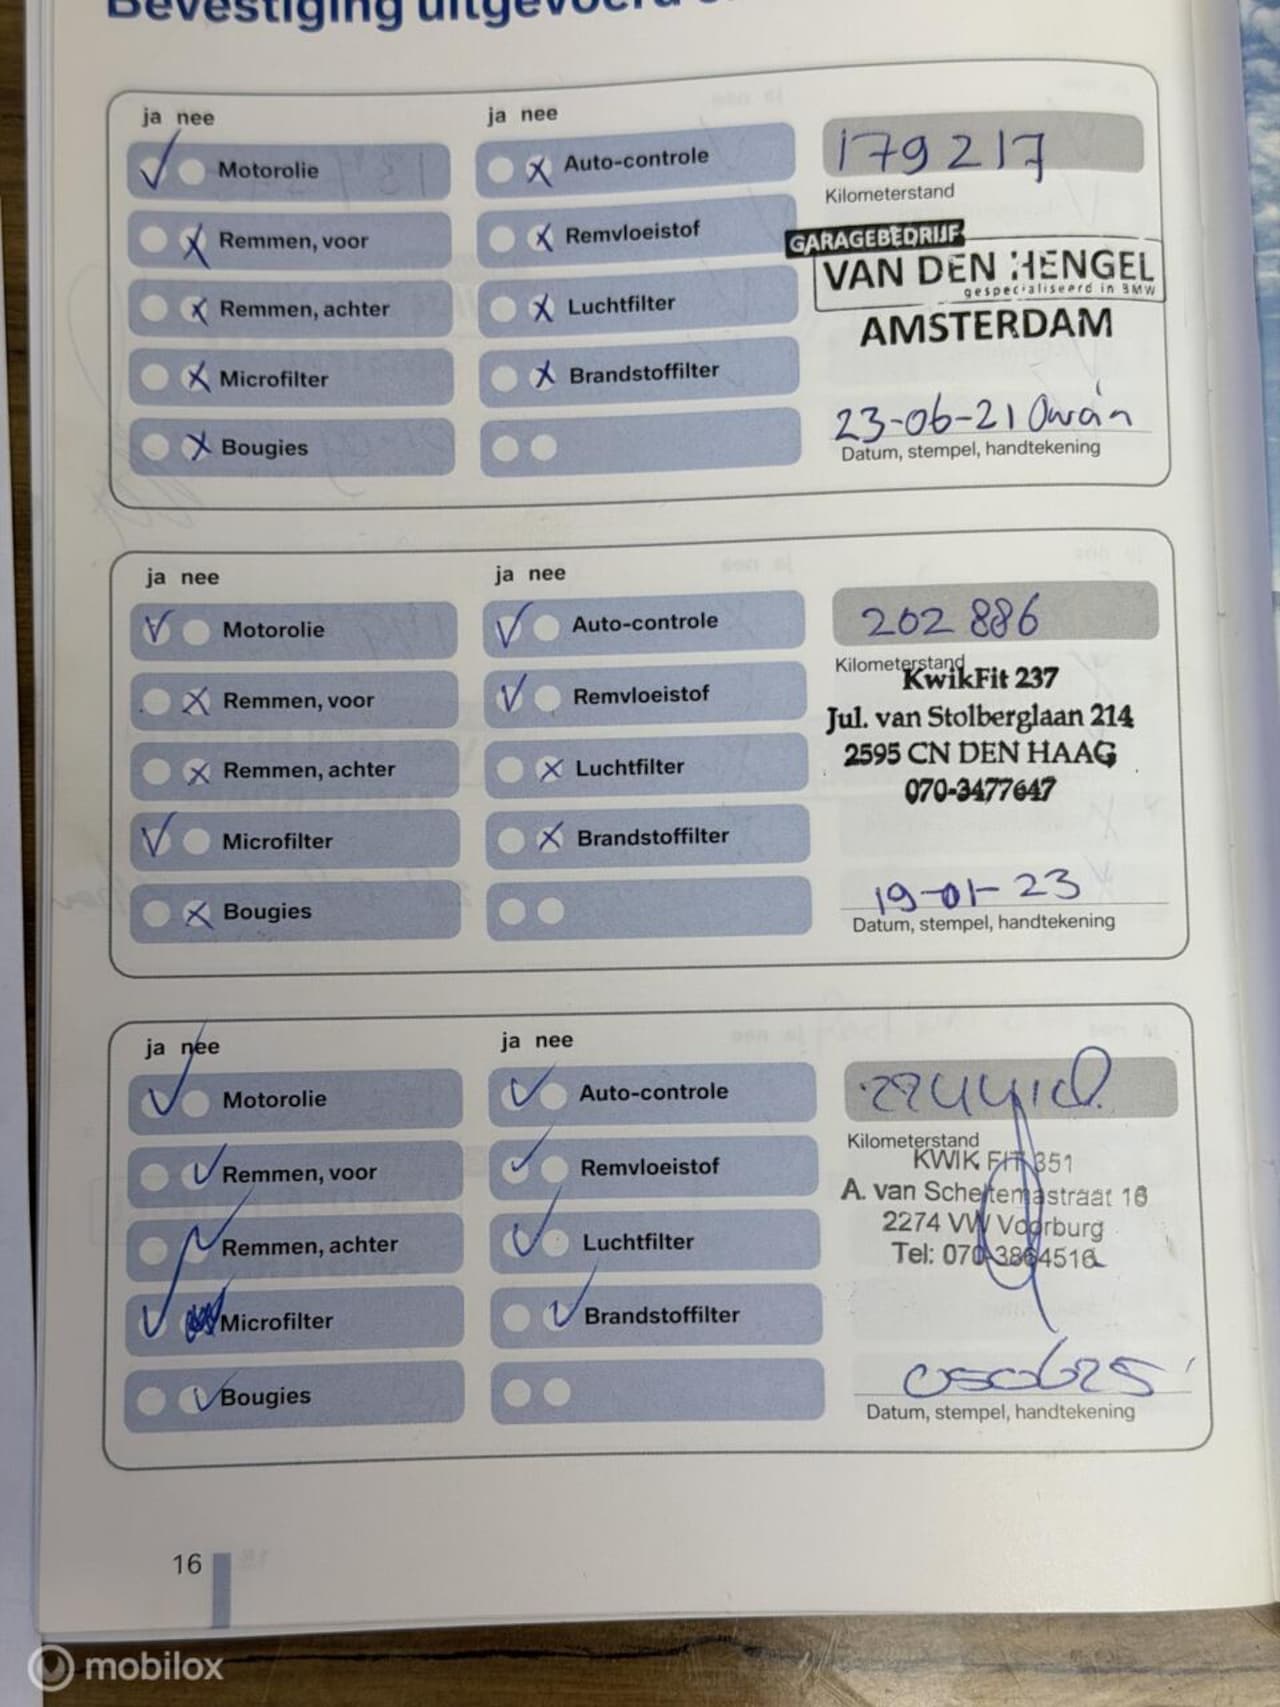 Bevestiging uitgevoerd
ja nee
Motorolie
Remmen, voor
Remmen, achter
Microfilter
Bougies
ja nee
Auto-controle
Remvloeistof
Luchtfilter
Brandstoffilter
179217
Kilometerstand
GARAGEBEDRIJF
VAN DEN HENGEL
gespecialiseerd in BMW
AMSTERDAM
23-06-21
Datum, stempel, handtekening
ja nee
Motorolie
Remmen, voor
Remmen, achter
Microfilter
Bougies
ja nee
Auto-controle
Remvloeistof
Luchtfilter
Brandstoffilter
202 886
Kilometerstand
KwikFit 237
Jul. van Stolberglaan 214
2595 CN DEN HAAG
070-3477647
19-01-23
Datum, stempel, handtekening
ja nee
Motorolie
Remmen, voor
Remmen, achter
Microfilter
Bougies
ja nee
Auto-controle
Remvloeistof
Luchtfilter
Brandstoffilter
Kilometerstand
KWIK FIT 351
A. van Scheltemastraat 16
2274 VW Voorburg
Tel: 070-3864516
050625
Datum, stempel, handtekening
16
mobilox